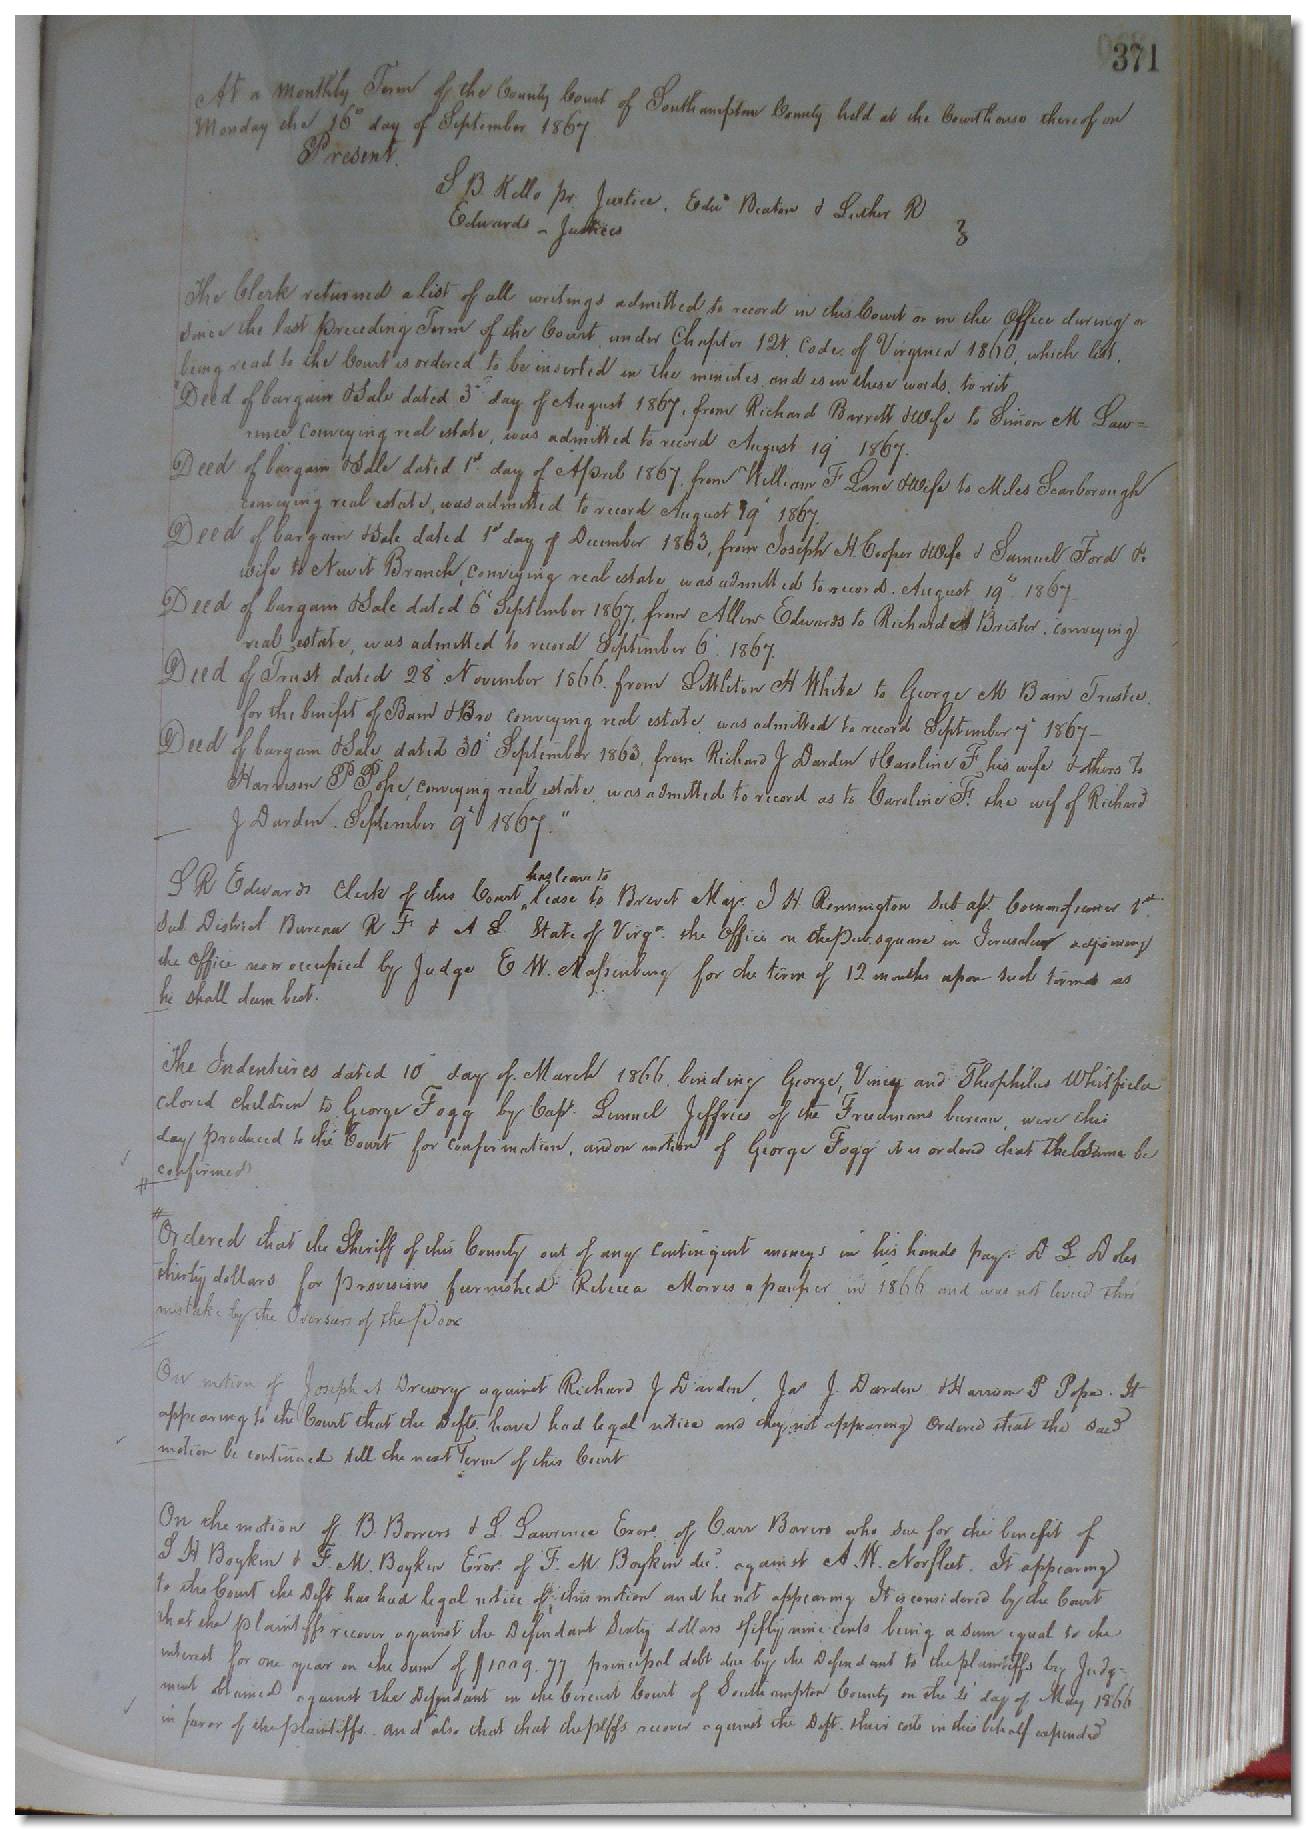 371
At a monthly Term of the County Court of Southampton County held at the Courthouse thereof on
Monday the 16" day of September 1867
Present.
S B Kello pr. Justice. Edw'd Beaton & Luther R
Edwards - Justices
The Clerk returned a list of all writings admitted to record in this Court or in the Office during or
since the last preceding Term of the Court, under Chapter 121, Code of Virginia 1860, which list,
being read to the Court is ordered to be inserted in the minutes and is in these words, to wit,
"Deed of bargain & Sale dated 3" day of August 1867, from Richard Barrett & Wife to Simon M Law=
rence, conveying real estate, was admitted to record August 19" 1867.
Deed of bargain & Sale dated 1st day of April 1867, from William F Lane & Wife to Miles Scarborough
conveying real estate, was admitted to record August 19" 1867.
Deed of bargain & Sale dated 1st day of December 1863, from Joseph H Cooper & Wife & Samuel Ford &
wife to Newit Branch, conveying real estate was admitted to record. August 19" 1867-
Deed of bargain & Sale dated 6" September 1867, from Allen Edwards to Richard A Brister, conveying
real estate, was admitted to record September 6" 1867.
Deed of Trust dated 28" November 1866 from Littleton H White to George M Bain Trustee.
for the benifit of Bain & Bro conveying real estate, was admitted to record September 7" 1867-
Deed of bargain & Sale, dated 30" September 1863, from Richard J Darden & Caroline F his wife & others to
Harrison P Pope, conveying real estate, was admitted to record as to Caroline F. the wife of Richard
J Darden. September 9" 1867."
has leave to
L R Edwards Clerk of this Court, lease to Brevet Maj. J H Remington Sub asst. Commissioner 1st
Sub District Bureau R F & A L State of Virga. the Office on the pub. square in Jerusalem adjoining
the Office now occupied by Judge E W. Massenburg for the term of 12 months upon such terms as
he shall deem best.
The Indentures dated 10" day of March 1866, binding George, Viney and Theophilus Whitfield
colored children to George Fogg by Capt. Lemuel Jeffries of the Freedmans bureau, were this
day produced to the Court for confirmation, and on motion of George Fogg it is ordered that the same be
confirmed
Ordered that the Sheriff of this County out of any contingent moneys in his hands pay D L Doles
thirty dollars for provisions furnished Rebecca Morris a pauper in 1866 and was not levied thro'
mistake by the Overseers of the Poor
On motion of Joseph Drewry against Richard J Darden, Jas J. Darden & Harrison P Pope. It
appearing to the Court that the Defts. have had legal notice and they not appearing Ordered that the said
motion be continued till the next Term of this Court
On the motion of B. Bowers & L. Lawrence Exors. of Carr Bowers who sue for the benefit of
S H Boykin & F. M. Boykin Exor. of F. M. Boykin dec'd. against A. W. Norfleet. It appearing
to the Court the Deft has had legal notice of this motion and he not appearing It is considered by the Court
that the plaintiffs recover against the Defendant Sixty dollars & fifty nine cents being a sum equal to the
interest for one year on the sum of $1009.77 principal debt due by the Defendant to the plaintiffs by Judg-
ment obtained against the Defendant in the Circuit Court of Southampton County on the day of May 1866
in favor of the plaintiffs. and also that that the plffs recover against the Deft. their costs in this behalf expended